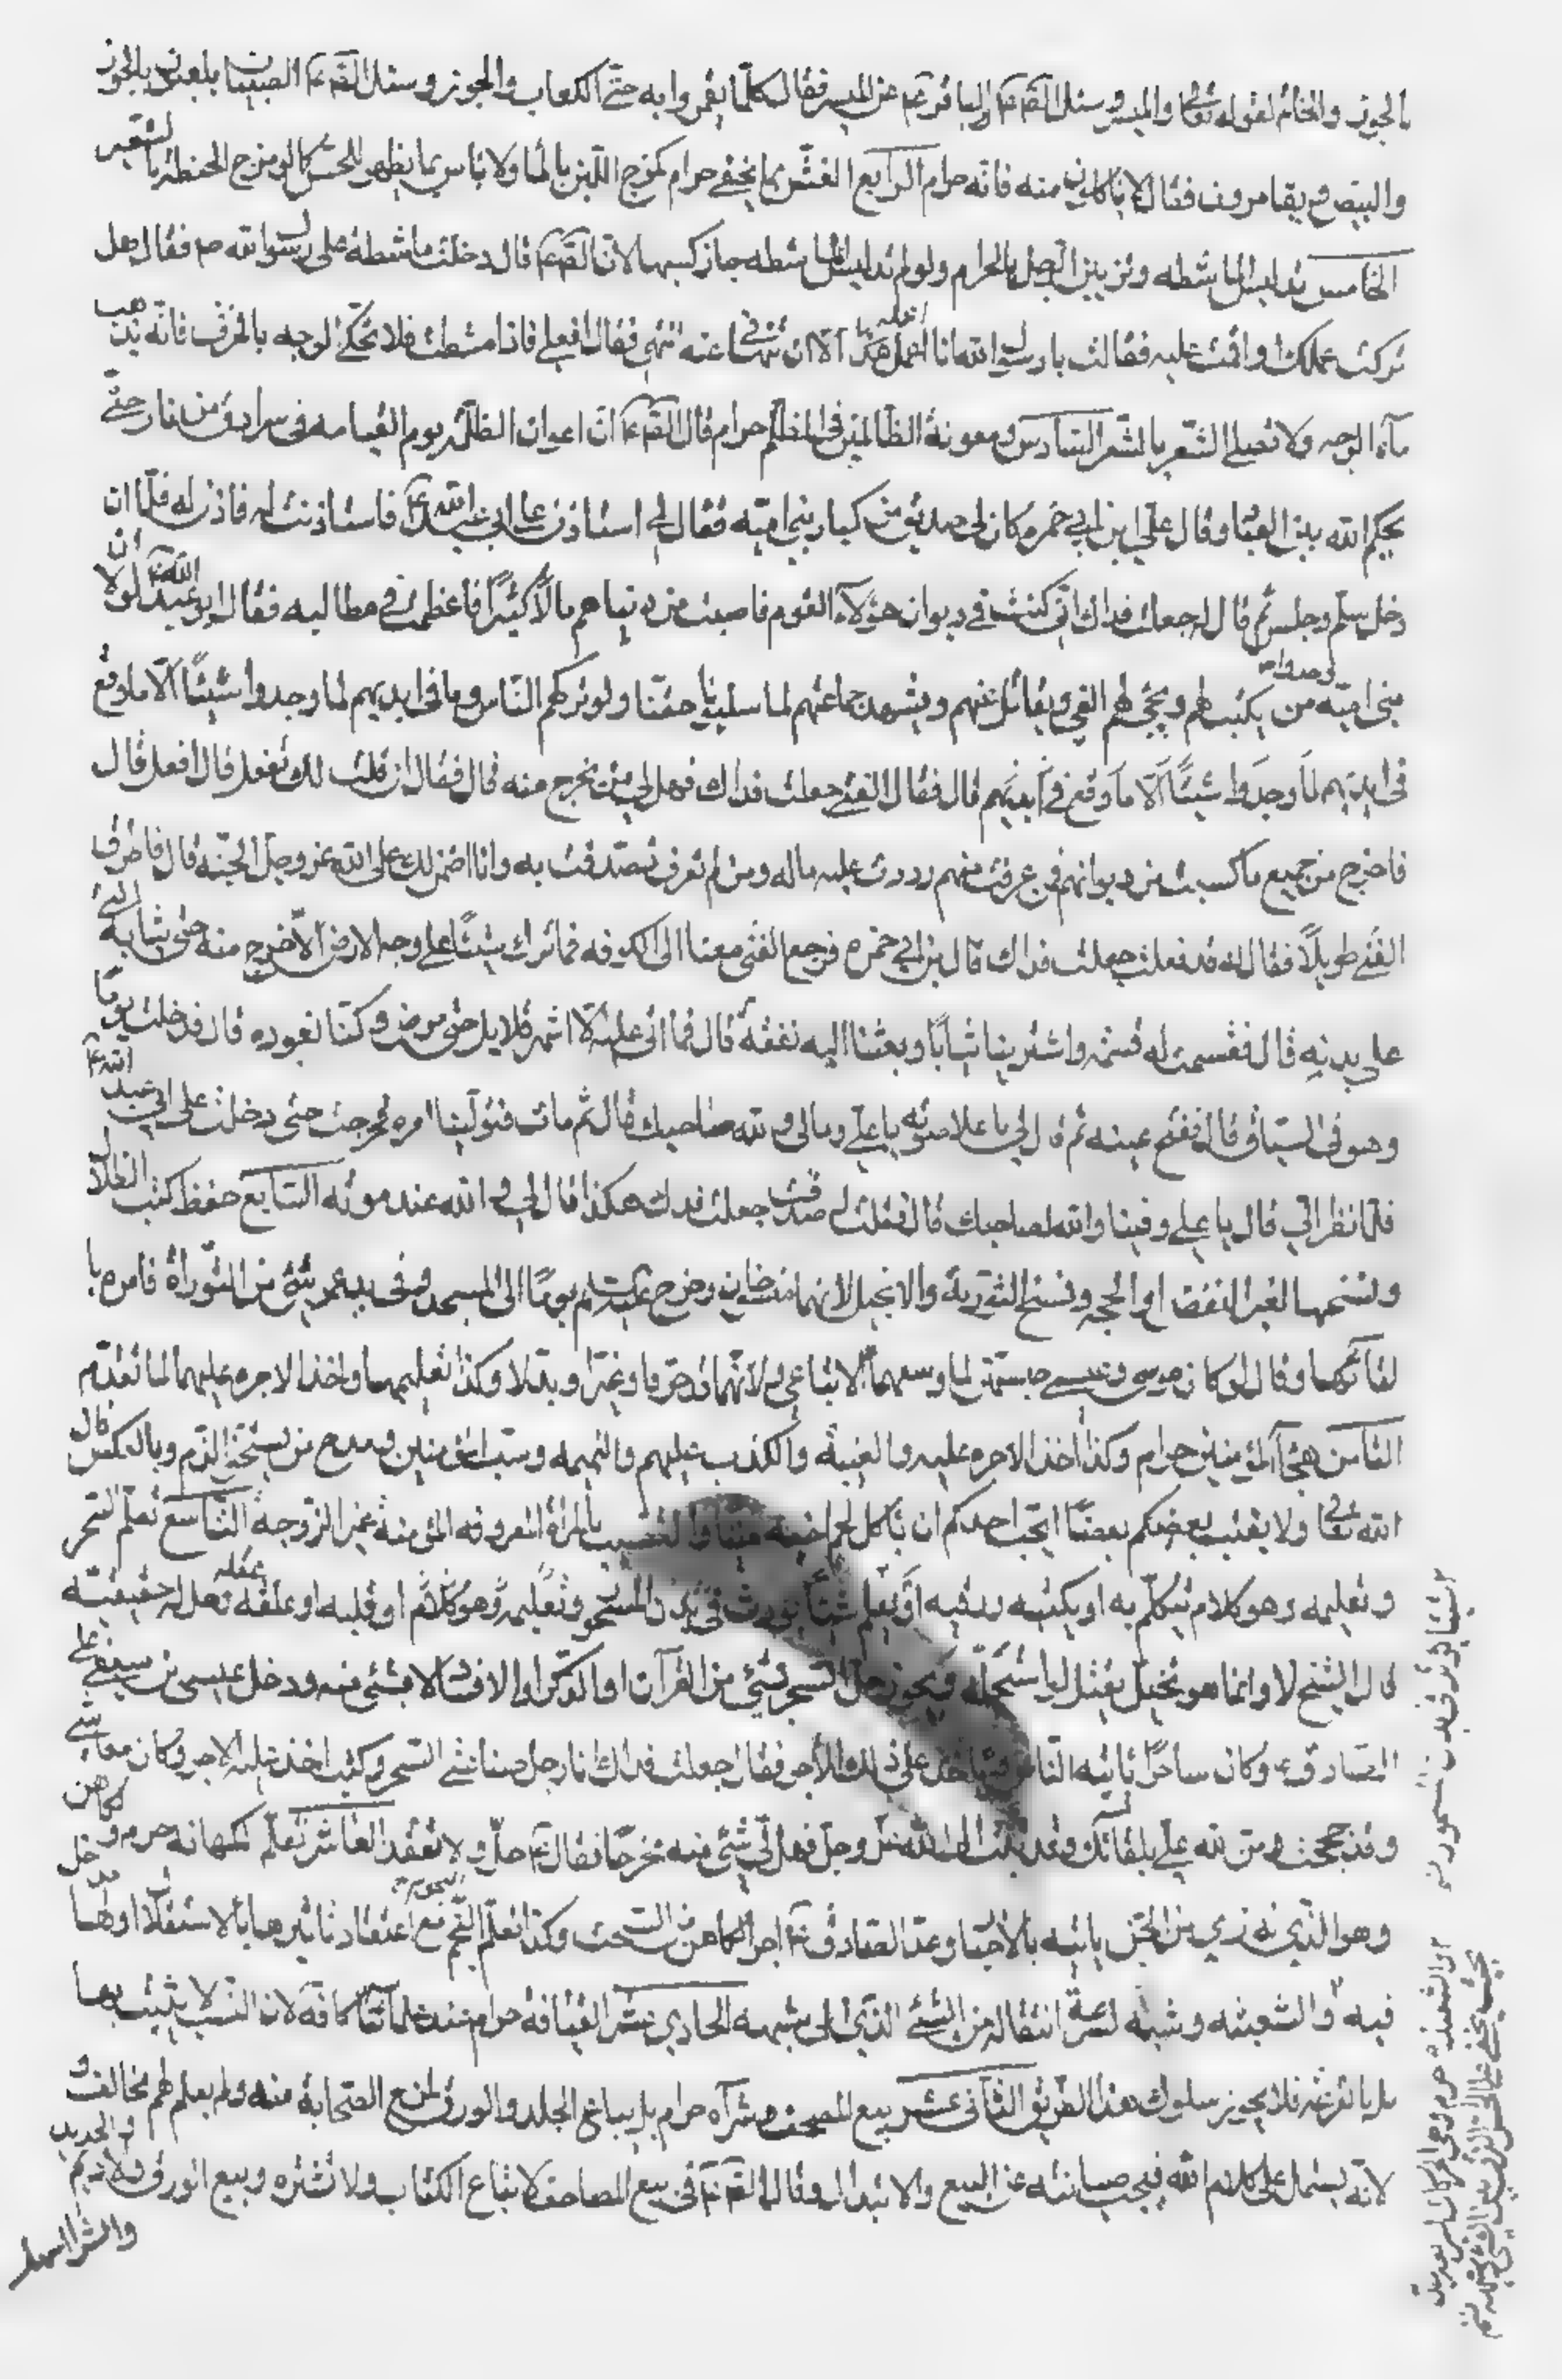 بالجوز والخاتم لقوله تعالى والميسر وسئل الصّ ع والباقر ع عن الميسر فقال كلّما يقمروا به حتّى الكعاب والجوز وسئل الصّ ع الصبيان يلعبون بالجوز
والبيض ويقامرون فقال لا تاكلون منه فانّه حرام الرابع الغشّ بما يخفى حرام كمزج اللّبن بالماء ولا باس بما يظهر للحسّ كما لو مزج الحنطة بالشعير
الخامس تدليس الماشطه وتزيين الرّجل بالحرام ولو لم تدليس الماشطه جاز كسبها لانّ الصّ ع قال دخلت ماشطة على رسول الله ص فقال هل
تركت عملك او اقمت عليه فقالت يا رسول الله انا اعمله الا ان تنهاني عنه انتهي فقال افعلي فاذا مشطت فلا تحكّي الوجه بالخزف فانّه يذهب
مآء الوجه ولا تصلي الشّعر بالشّعر السّادس ومعونة الظالمين في الظلم حرام قال الصّ ع انّ اعوان الظلمة يوم القيامه في سرادق من نار حتّى
يحكم الله بين العباد وقال علي ابن ابي حمزه كان لي صديق من كبار بني اميّه فقال لي استاذن على ابي عبد الله ع فاستاذنت له فاذن له فلمّا ان
دخل سلّم وجلس ثم قال له جعلت فداك انّي كنت في ديوان هؤلآء القوم فاصبت من دنياهم مالاً كثيرًا فاغظمت في مطالبه فقال ابو عبد الله ع لولا ان
بني اميّه وجدوا من يكتب لهم ويجبي لهم الفئ ويقاتل عنهم ويشهد جماعتهم لما سلبونا حقّنا ولو تركهم النّاس وما في ايديهم لما وجدوا شيئًا الّا ما وقع
في ايديهم لما وجدوا شيئًا الّا ما وقع في ايديهم قال فقال الفتى جعلت فداك فهل لي من مخرج منه قال فقال ان قلت لك تفعل قال افعل قال
فاخرج من جميع ما كسبت من ديوانهم فمن عرفت منهم رددت عليه ماله ومن لم تعرف تصدّقت به وانا اضمن لك على الله عز وجل الجنّه قال فاطرق
الفتى طويلاً فقال له قد فعلت جعلت فداك قال بن ابي حمزه فرجع الفتى معنا الى الكوفه فما ترك شيئًا على وجه الارض الاّ خرج منه حتى ثيابه التي
على بدنه قال فقسمت له قسمة واشترينا ثيابًا وبعثنا اليه نفقة قال فما اتى عليه الّا اشهر قلايل حتى مرض وكنّا نعوده قال فدخلت يومًا
وهو في السّياق قال ففتح عينه ثم قال لي يا علي وفى لي والله صاحبك قال ثم مات فتولّينا امره فخرجت حتى دخلت على ابي عبد الله ع
فلمّا نظر الي قال يا علي وفينا والله لصاحبك قال فقلت له صدقت جعلت فداك هكذا قال لي والله عند موته السّابع حفظ كتب الضلال
ونسخها لغير النقض او الحجه ونسخ التورية والانجيل لانهما منسوخان وخرج ع يومًا الى المسجد وفي يد عمر شئ من التّوراة فامره با
لقائها وقال لو كان موسى وعيسى حيّين لما وسعهما الّا اتباعي ولانّهما قد حرفا وغيّرا وبدّلا وكذا تعليمهما واخذ الاجره عليهما لما تقدّم
الثامن هجآء المؤمنين حرام وكذا اخذ الاجره عليه والغيبة والكذب عليهم والنميمه وسبّ المؤمنين ومدح من يستحقّ الذّم وبالعكس قال
الله تعالى ولا يغتب بعضكم بعضًا ايحبّ احدكم ان ياكل لحم اخيه ميتا والتشبيب بالمراة المعروفه المؤمنة غير الزّوجة التّاسع تعلّم السّحر
وتعليمه وهو كلام يتكلّم به او يكتبه ورقيه او يعلم شيئًا يؤثر في بدن المسحور او قلبه او عقله وهل له حقيقة
قال الشّيخ لا وانما هو تخييل يقتل لو استحلّه ويجوز حلّ السّحر بشيئ من القرآن او الذّكر او الاقسام لا بشئ منه ودخل عيسى بن سيفي على
الصّادق ع وكان ساحرًا ياتيه النّاس وياخذ على ذلك الأجر فقال جعلت فداك انا رجل صناعتي السّحر وكنت اخذ عليه الاجر وكان معاشي
وقد حججت ومنّ الله عليّ بلقائك وقد تبت الى الله عزّ وجل فهل لي شئ منه مخرجًا فقال ع حلّ ولا تعقد العاشر تعلّم الكهانه حرم والكاهن
وهو الّذي له زي من الجنّ ياتيه بالأخبار وعند الصّادق ع اجر الكاهن من السّحت وكذا تعلّم النّجوم مع اعتقاد تاثيرها بالاستقلال او لها مدخل
فيه والشعبثه وشبهه لسرعة انتقاله من الشّئ الّذي الى شبهه الحادي عشر القيافة حرام عند علمائنا كافة لان النسب لا يثبت بها
بل بالقرعة فلا يجوز سلوك هذا الطريق الثّاني عشر بيع المصحف وشرآه حرام بل يباع الجلد والورق لمنع الصّحابة منه ولم يعلم لهم مخالف و
لانّه يشمل على كلام الله فيجب صيانته عن البيع والابتدال وقال الصّ ع في بيع المصاحف لا تباع الكتاب ولا تشتره وبيع الورق والاديم والحديد